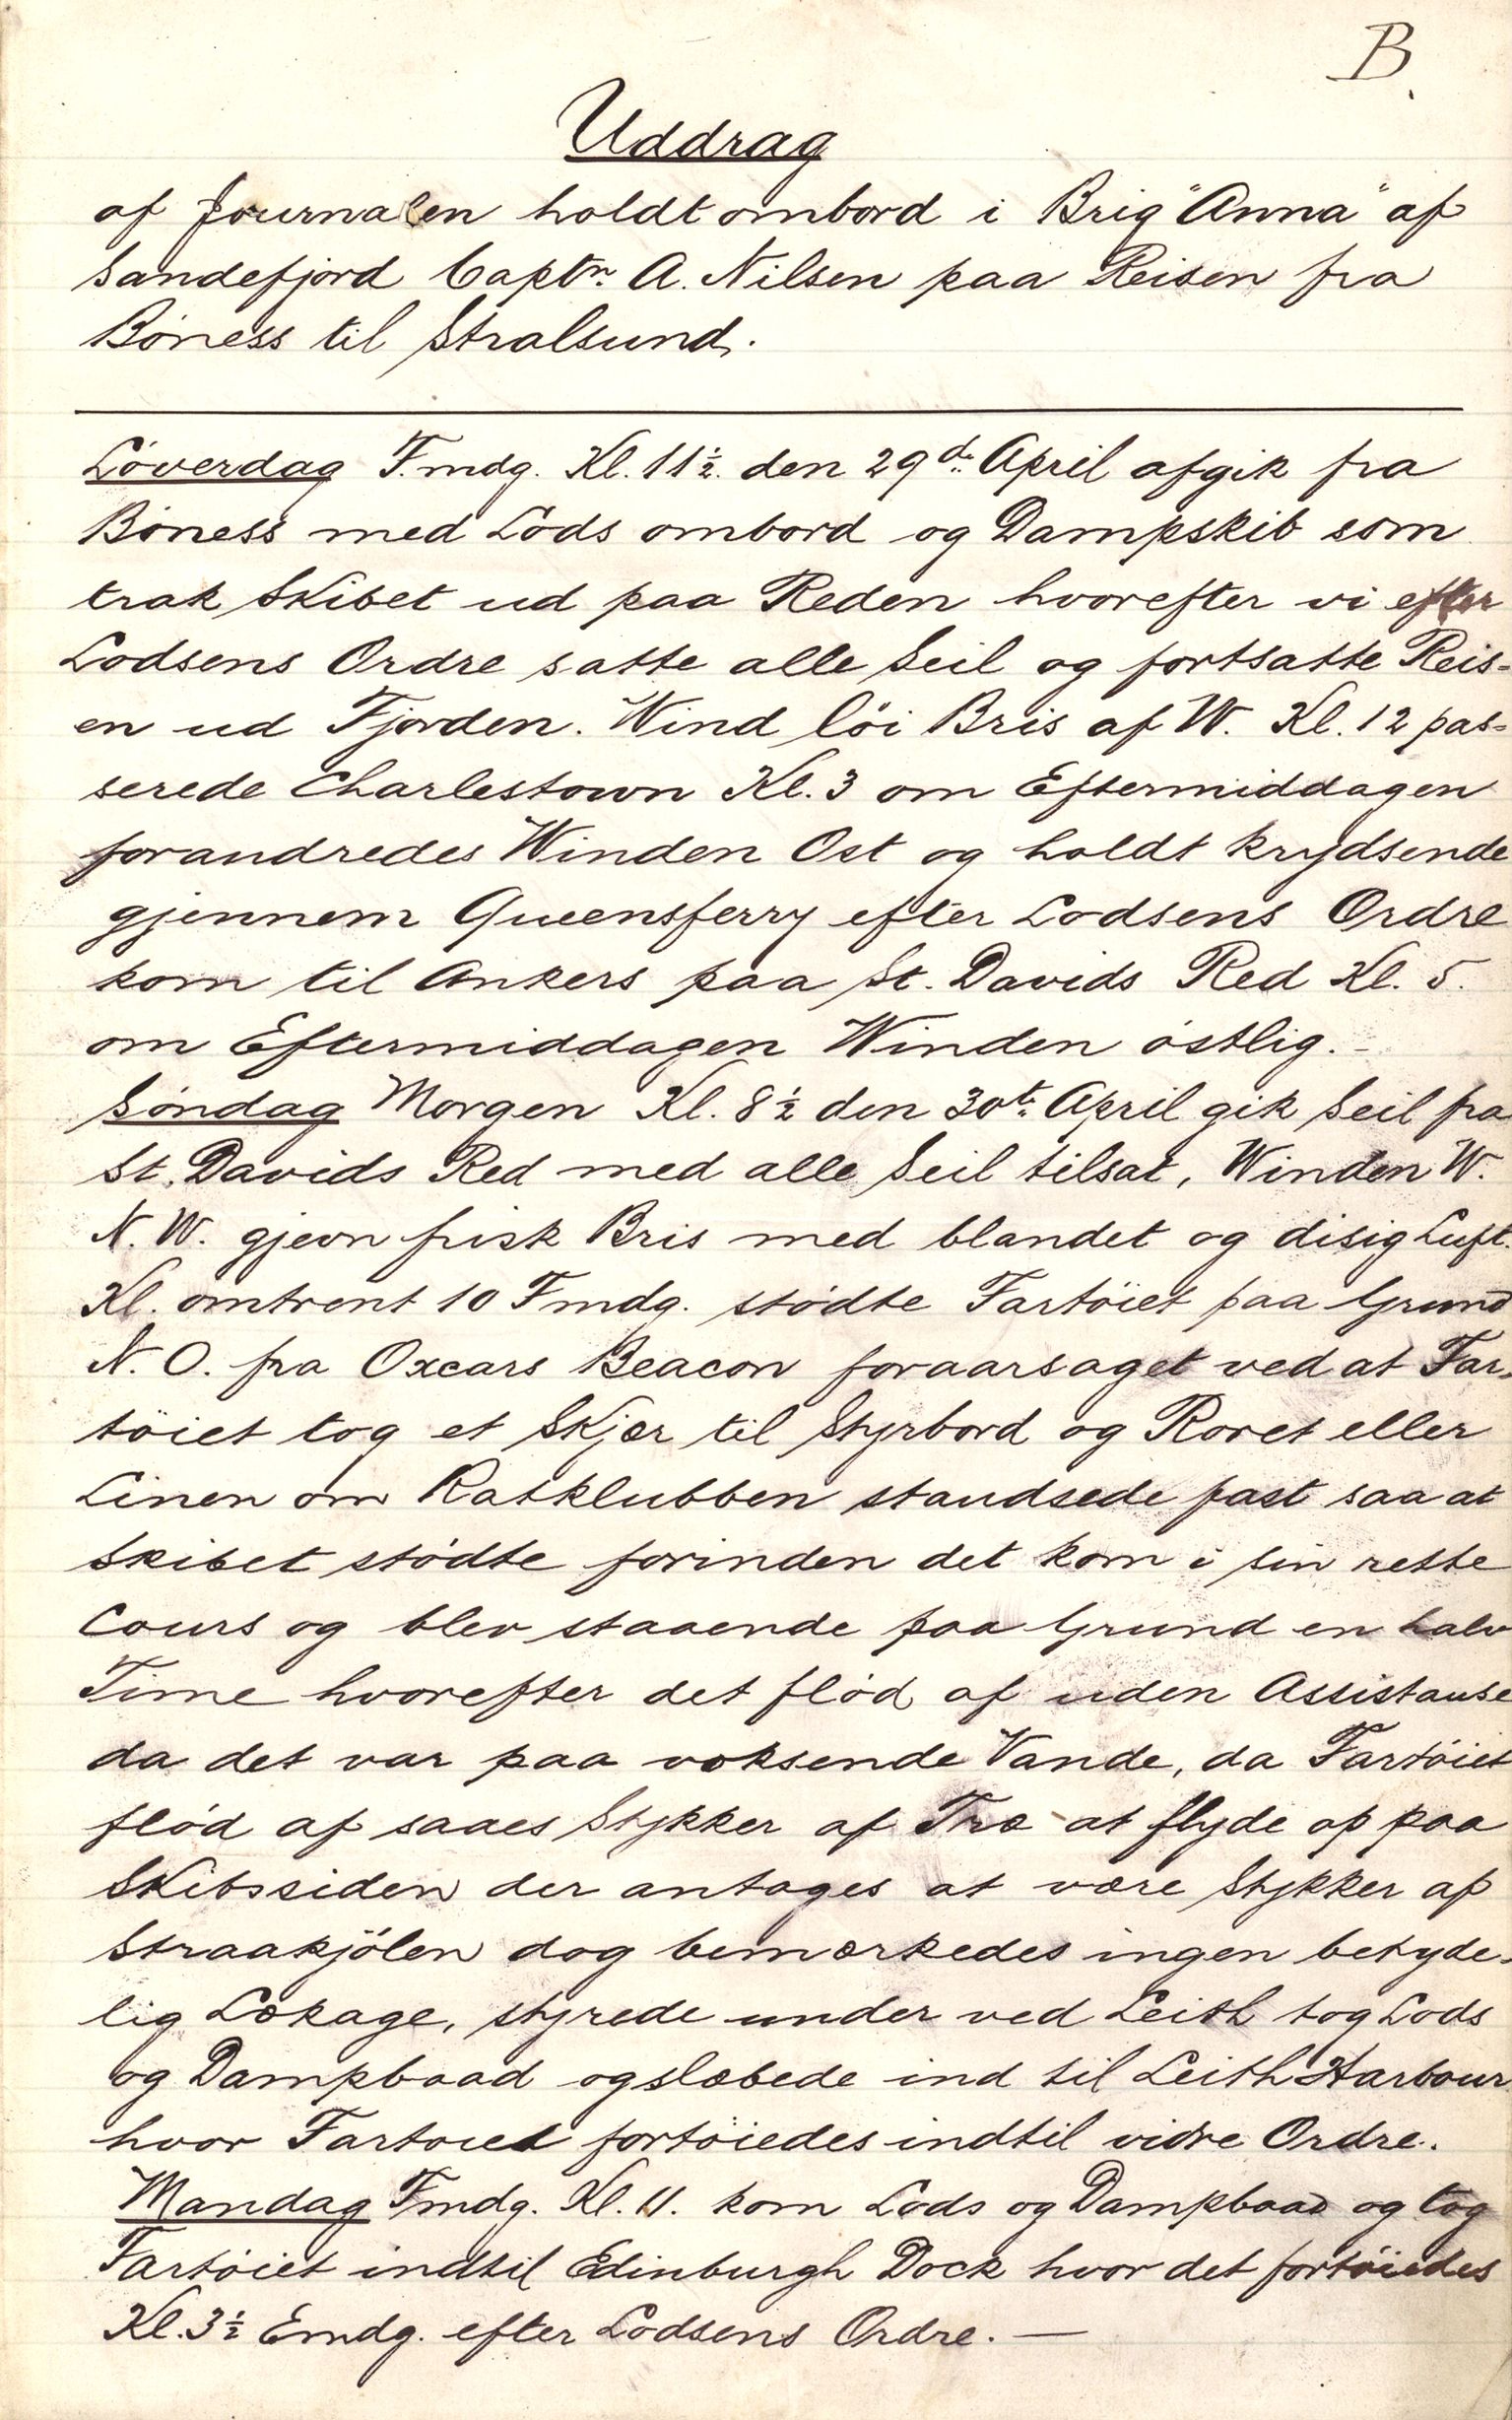 B.
Uddrag
af Journalen holdt ombord i Brig "Anna" af
Sandefjord Captn. A. Nilsen paa Reisen fra
Bóness til Stralsund.
Lóverdag F.mdg. Kl. 11½. den 29de April afgik fra
Bóness med Lods ombord og Dampskib som
trak Skibet ud paa Reden hvorefter vi efter
Lodsens Ordre satte alle Seil og fortsatte Reis=
en ud Fjorden. Wind lói Bris af W. Kl. 12 pas=
serede Charlestown Kl. 3 om Eftermiddagen
forandredes Winden Ost og holdt krydsende
gjennem Queensferry efter Lodsens Ordre
kom til Ankers paa St. Davids Red Kl. 5.
om Eftermiddagen Winden óstlig. -
Sóndag Morgen Kl. 8½ den 30te April gik Seil fra
St. Davids Red med alle Seil tilsat, Winden W.
N. W. gjevn frisk Bris med blandet og disig Luft.
Kl. omtrent 10 Fmdg. stódte Fartóiet paa Grund
N. O. fra Oxcars Beacon foraarsaget ved at Far=
tóiet tog et Skjær til Styrbord og Roret eller
Linen om Ratklubben standsede fast saa at
Skibet stódte forinden det kom i sin rette
Cours og blev staaende paa Grund en halv
Time hvorefter det flód af uden Assistanse
da det var paa voksende Vande, da Fartóiet
flód af saaes Stykker af Træ at flyde op paa
Skibssiden der antages at være Stykker af
Straakjólen dog bemærkedes ingen betyde=
lig Lækage, styrede under ved Leith tog Lods
og Dampbaad og slæbede ind til Leith Harbour
hvor Fartoiet fortóiedes indtil vidre Ordre.
Mandag Fmdg. Kl. 11. kom Lods og Dampbaad og tog
Fartóiet indtil Edinburgh Dock hvor det fortóiedes
Kl. 3½ Emdg. efter Lodsens Ordre. —